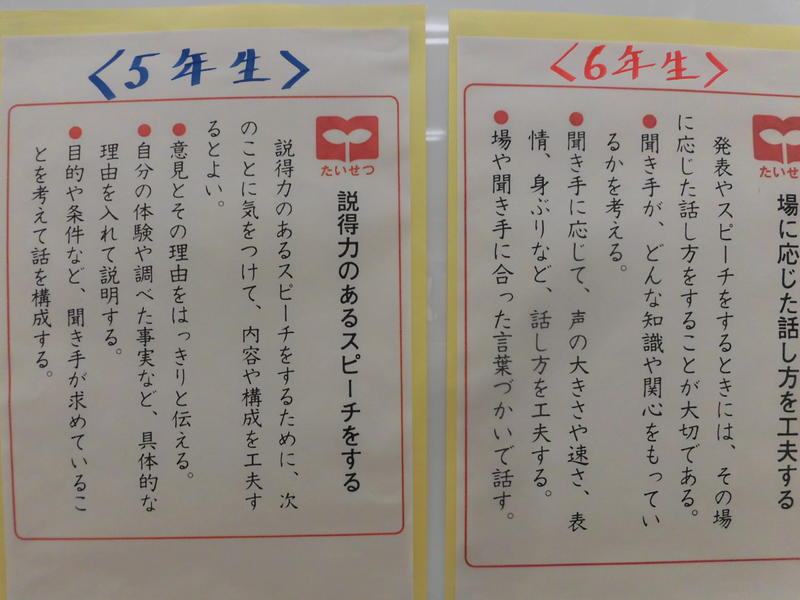 〈5年生〉
たいせつ
説得力のあるスピーチをする
説得力のあるスピーチをするために、次
のことに気をつけて、内容や構成を工夫す
るとよい。
●意見とその理由をはっきりと伝える。
●自分の体験や調べた事実など、具体的な
理由を入れて説明する。
●目的や条件など、聞き手が求めているこ
とを考えて話を構成する。
〈6年生〉
たいせ
場に応じた話し方を工夫する
発表やスピーチをするときには、その場
に応じた話し方をすることが大切である。
●聞き手が、どんな知識や関心をもってい
るかを考える。
●聞き手に応じて、声の大きさや速さ、表
情、身ぶりなど、話し方を工夫する。
●場や聞き手に合った言葉づかいで話す。